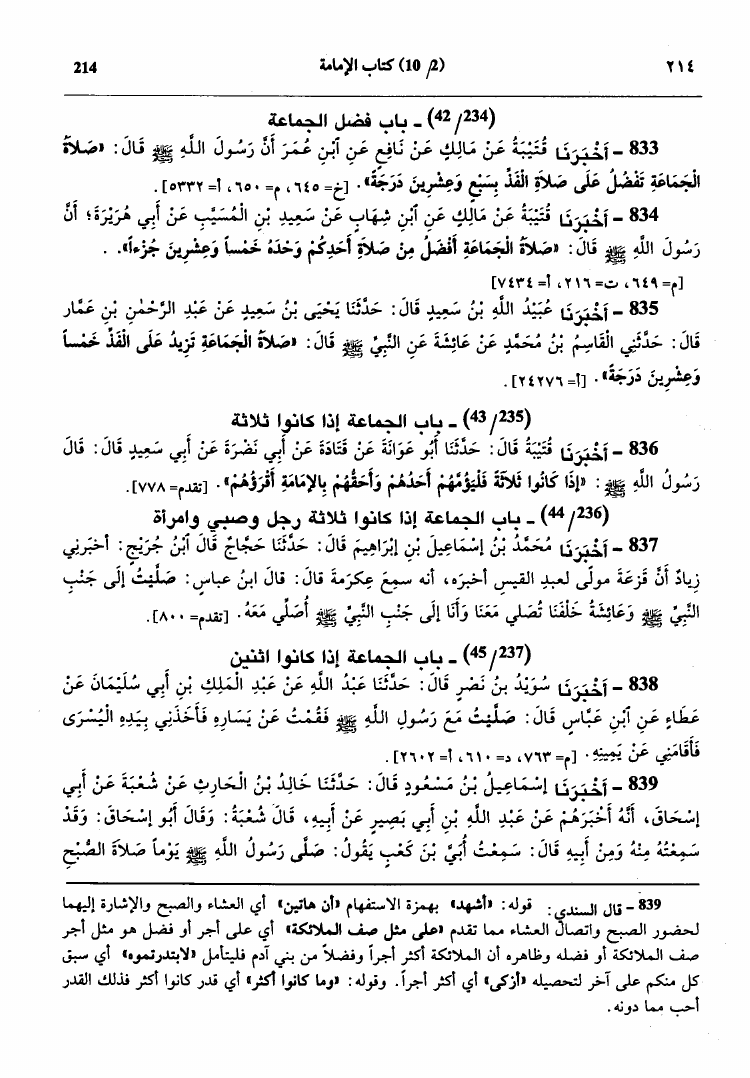 ٢١٤ (2/ 10) كتاب الإمامة 214
(42/234) ـ باب فضل الجماعة
833 ـ أَخْبَرَنَا قُتَيْبَةُ عَنْ مَالِكٍ عَنْ نَافِعٍ عَنِ ٱبْنِ عُمَرَ أَنَّ رَسُولَ اللَّهِ ﷺ قَالَ: «صَلاَةُ
الْجَمَاعَةِ تَفْضُلُ عَلَى صَلاَةِ الْفَذِّ بِسَبْعٍ وَعِشْرِينَ دَرَجَةً». [خ= ٦٤٥، م= ٦٥٠، أ= ٥٣٣٢].
834 ـ أَخْبَرَنَا قُتَيْبَةُ عَنْ مَالِكٍ عَنِ ٱبْنِ شِهَابٍ عَنْ سَعِيدِ بْنِ الْمُسَيَّبِ عَنْ أَبِي هُرَيْرَةَ؛ أَنَّ
رَسُولَ اللَّهِ ﷺ قَالَ: «صَلاَةُ الْجَمَاعَةِ أَفْضَلُ مِنْ صَلاَةِ أَحَدِكُمْ وَحْدَهُ خَمْساً وَعِشْرِينَ جُزْءاً». .
[م= ٦٤٩، ت= ٢١٦، أ= ٧٤٣٤]
835 ـ أَخْبَرَنَا عُبَيْدُ اللَّهِ بْنُ سَعِيدٍ قَالَ: حَدَّثَنَا يَحْيَى بْنُ سَعِيدٍ عَنْ عَبْدِ الرَّحْمٰنِ بْنِ عَمَّار
قَالَ: حَدَّثَنِي الْقَاسِمُ بْنُ مُحَمَّدٍ عَنْ عَائِشَةَ عَنِ النَّبِيِّ ﷺ قَالَ: «صَلاَةُ الْجَمَاعَةِ تَزِيدُ عَلَى الْفَذِّ خَمْساً
وَعِشْرِينَ دَرَجَةً». [أ= ٢٤٢٧٦].
(43/235) ـ باب الجماعة إذا كانوا ثلاثة
836 ـ أَخْبَرَنَا قُتَيْبَةُ قَالَ: حَدَّثَنَا أَبُو عَوَانَةَ عَنْ قَتَادَةَ عَنْ أَبِي نَضْرَةَ عَنْ أَبِي سَعِيدٍ قَالَ: قَالَ
رَسُولُ اللَّهِ ﷺ: «إِذَا كَانُوا ثَلاَثَةً فَلْيَؤُمَّهُمْ أَحَدُهُمْ وَأَحَقُّهُمْ بِالإِمَامَةِ أَقْرَؤُهُمْ». [تقدم= ٧٧٨].
(44/236) ـ باب الجماعة إذا كانوا ثلاثة رجل وصبي وامرأة
837 ـ أَخْبَرَنَا مُحَمَّدُ بْنُ إِسْمَاعِيلَ بْنِ إِبْرَاهِيمَ قَالَ: حَدَّثَنَا حَجَّاجٌ قَالَ ٱبْنُ جُرَيْجٍ: أخبَرَنِي
زِيادٌ أَنَّ قَزَعَةَ مولًى لعبدِ القيسِ أخبرَه، أنه سمِعَ عِكرمَةَ قالَ: قالَ ابنُ عباسٍ: صَلَّيْتُ إلَى جَنْبِ
النَّبِيِّ ﷺ وَعَائِشَةُ خَلْفَنَا تُصَلي مَعَنَا وَأَنَا إلَى جَنْبِ النَّبِيِّ ﷺ أُصَلِّي مَعَهُ. [تقدم= ٨٠٠].
(45/237) ـ باب الجماعة إذا كانوا اثنين
838 ـ أَخْبَرَنَا سُوَيْدُ بنُ نَصْرٍ قَالَ: حَدَّثَنَا عَبْدُ اللَّهِ عَنْ عَبْدِ الْمَلِكِ بْنِ أَبِي سُلَيْمَانَ عَنْ
عَطَاءٍ عَنِ ٱبْنِ عَبَّاسٍ قَالَ: صَلَّيْتُ مَعَ رَسُولِ اللَّهِ ﷺ فَقُمْتُ عَنْ يَسَارِهِ فَأَخَذَنِي بِيَدِهِ الْيُسْرَى
فَأَقَامَنِي عَنْ يَمِينِهِ. [م= ٧٦٣، د= ٦١٠، أ= ٢٦٠٢].
839 ـ أَخْبَرَنَا إِسْمَاعِيلُ بْنُ مَسْعُودٍ قَالَ: حَدَّثَنَا خَالِدُ بْنُ الْحَارِثِ عَنْ شُعْبَةَ عَنْ أَبِي
إِسْحَاقَ، أَنَّهُ أَخْبَرَهُمْ عَنْ عَبْدِ اللَّهِ بْنِ أَبِي بَصِيرٍ عَنْ أَبِيهِ، قَالَ شُعْبَةُ: وَقَالَ أَبُو إِسْحَاقَ: وَقَدْ
سَمِعْتُهُ مِنْهُ وَمِنْ أَبِيهِ قَالَ: سَمِعْتُ أُبَيَّ بْنَ كَعْبٍ يَقُولُ: صَلَّى رَسُولُ اللَّهِ ﷺ يَوْماً صَلاَةَ الصُّبْحِ
839 ـ قال السندي: قوله: «أشهد» بهمزة الاستفهام «أن هاتين» أي العشاء والصبح والإشارة إليهما
لحضور الصبح واتصال العشاء مما تقدم «على مثل صف الملائكة» أي على أجر أو فضل هو مثل أجر
صف الملائكة أو فضله وظاهره أن الملائكة أكثر أجراً وفضلاً من بني آدم فليتأمل «لابتدرتموه» أي سبق
كل منكم على آخر لتحصيله «أزكى» أي أكثر أجراً. وقوله: «وما كانوا أكثر» أي قدر كانوا أكثر فذلك القدر
أحب مما دونه.